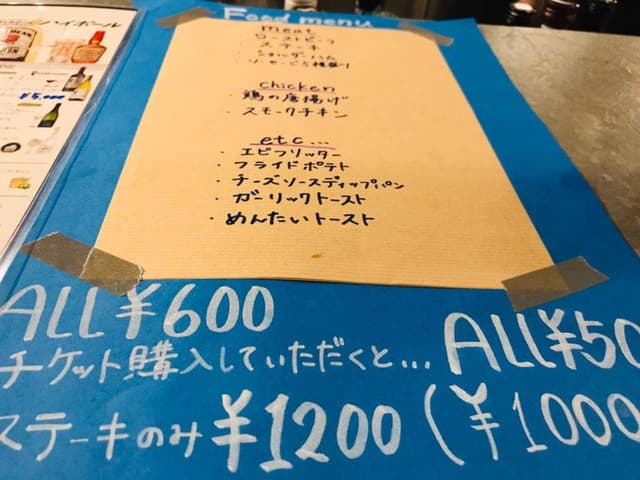 ハイボール
¥5,000
Food menu
meat
・ローストビーフ
・ステーキ
・ショルダーハム
・ソーセージ5種盛り
chicken
・鶏の唐揚げ
・スモークチキン
etc...
・エビフリッター
・フライドポテト
・チーズソースディップパン
・ガーリックトースト
・めんたいトースト
ALL ¥600
チケット購入していただくと... ALL ¥50
ステーキのみ ¥1200 (¥1000